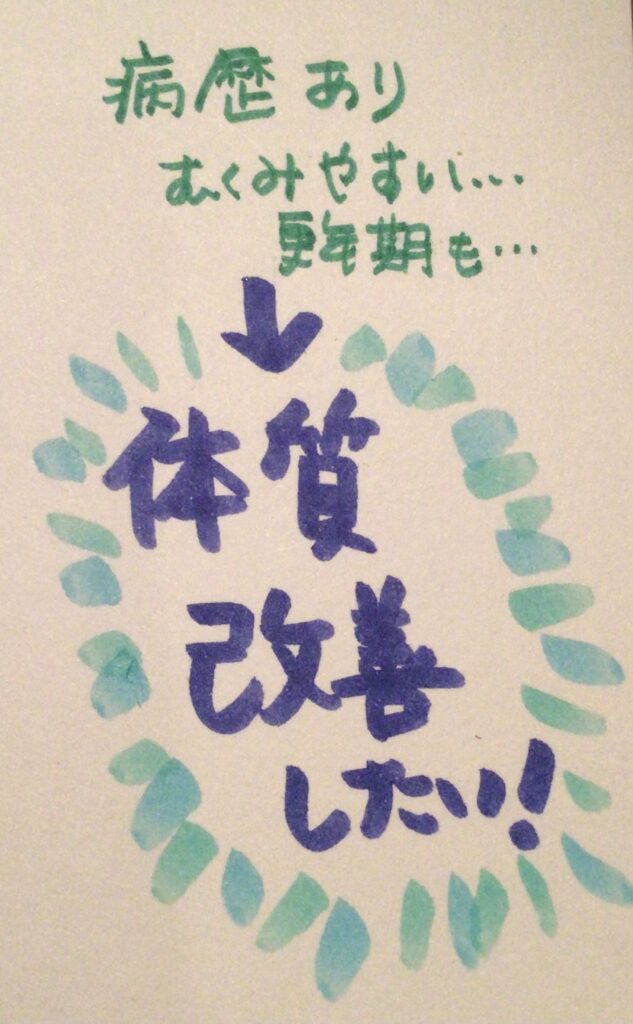 病歴あり
むくみやすい…
更年期も…
↓
体質
改善
したい!